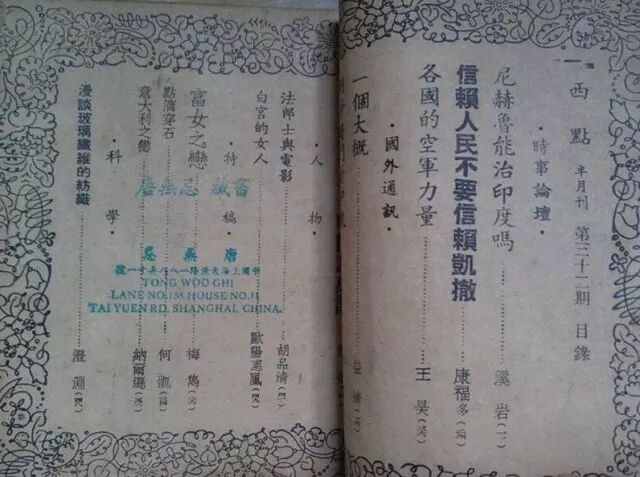 西點 半月刊 第三十二期 目錄
·時事論壇·
尼赫魯能治印度嗎 溪岩(一)
信賴人民不要信賴凱撒 康福多(四)
各國的空軍力量 王昊
·國外通訊·
一個大概
·人物·
法郎士與電影 胡品清
白宮的女人 歐陽惠風
·特稿·
富女之戀 梅雋
點滴穿石 何凱
意大利之戀 納爾遜
·科學·
漫談玻璃纖維的紡織 澄淵
唐無忌 藏書
唐無忌
中國上海太原路一八八弄十一號
TONG WOO GHI
LANE NO.188 HOUSE NO.11
TAI YUEN RD. SHANGHAI, CHINA.